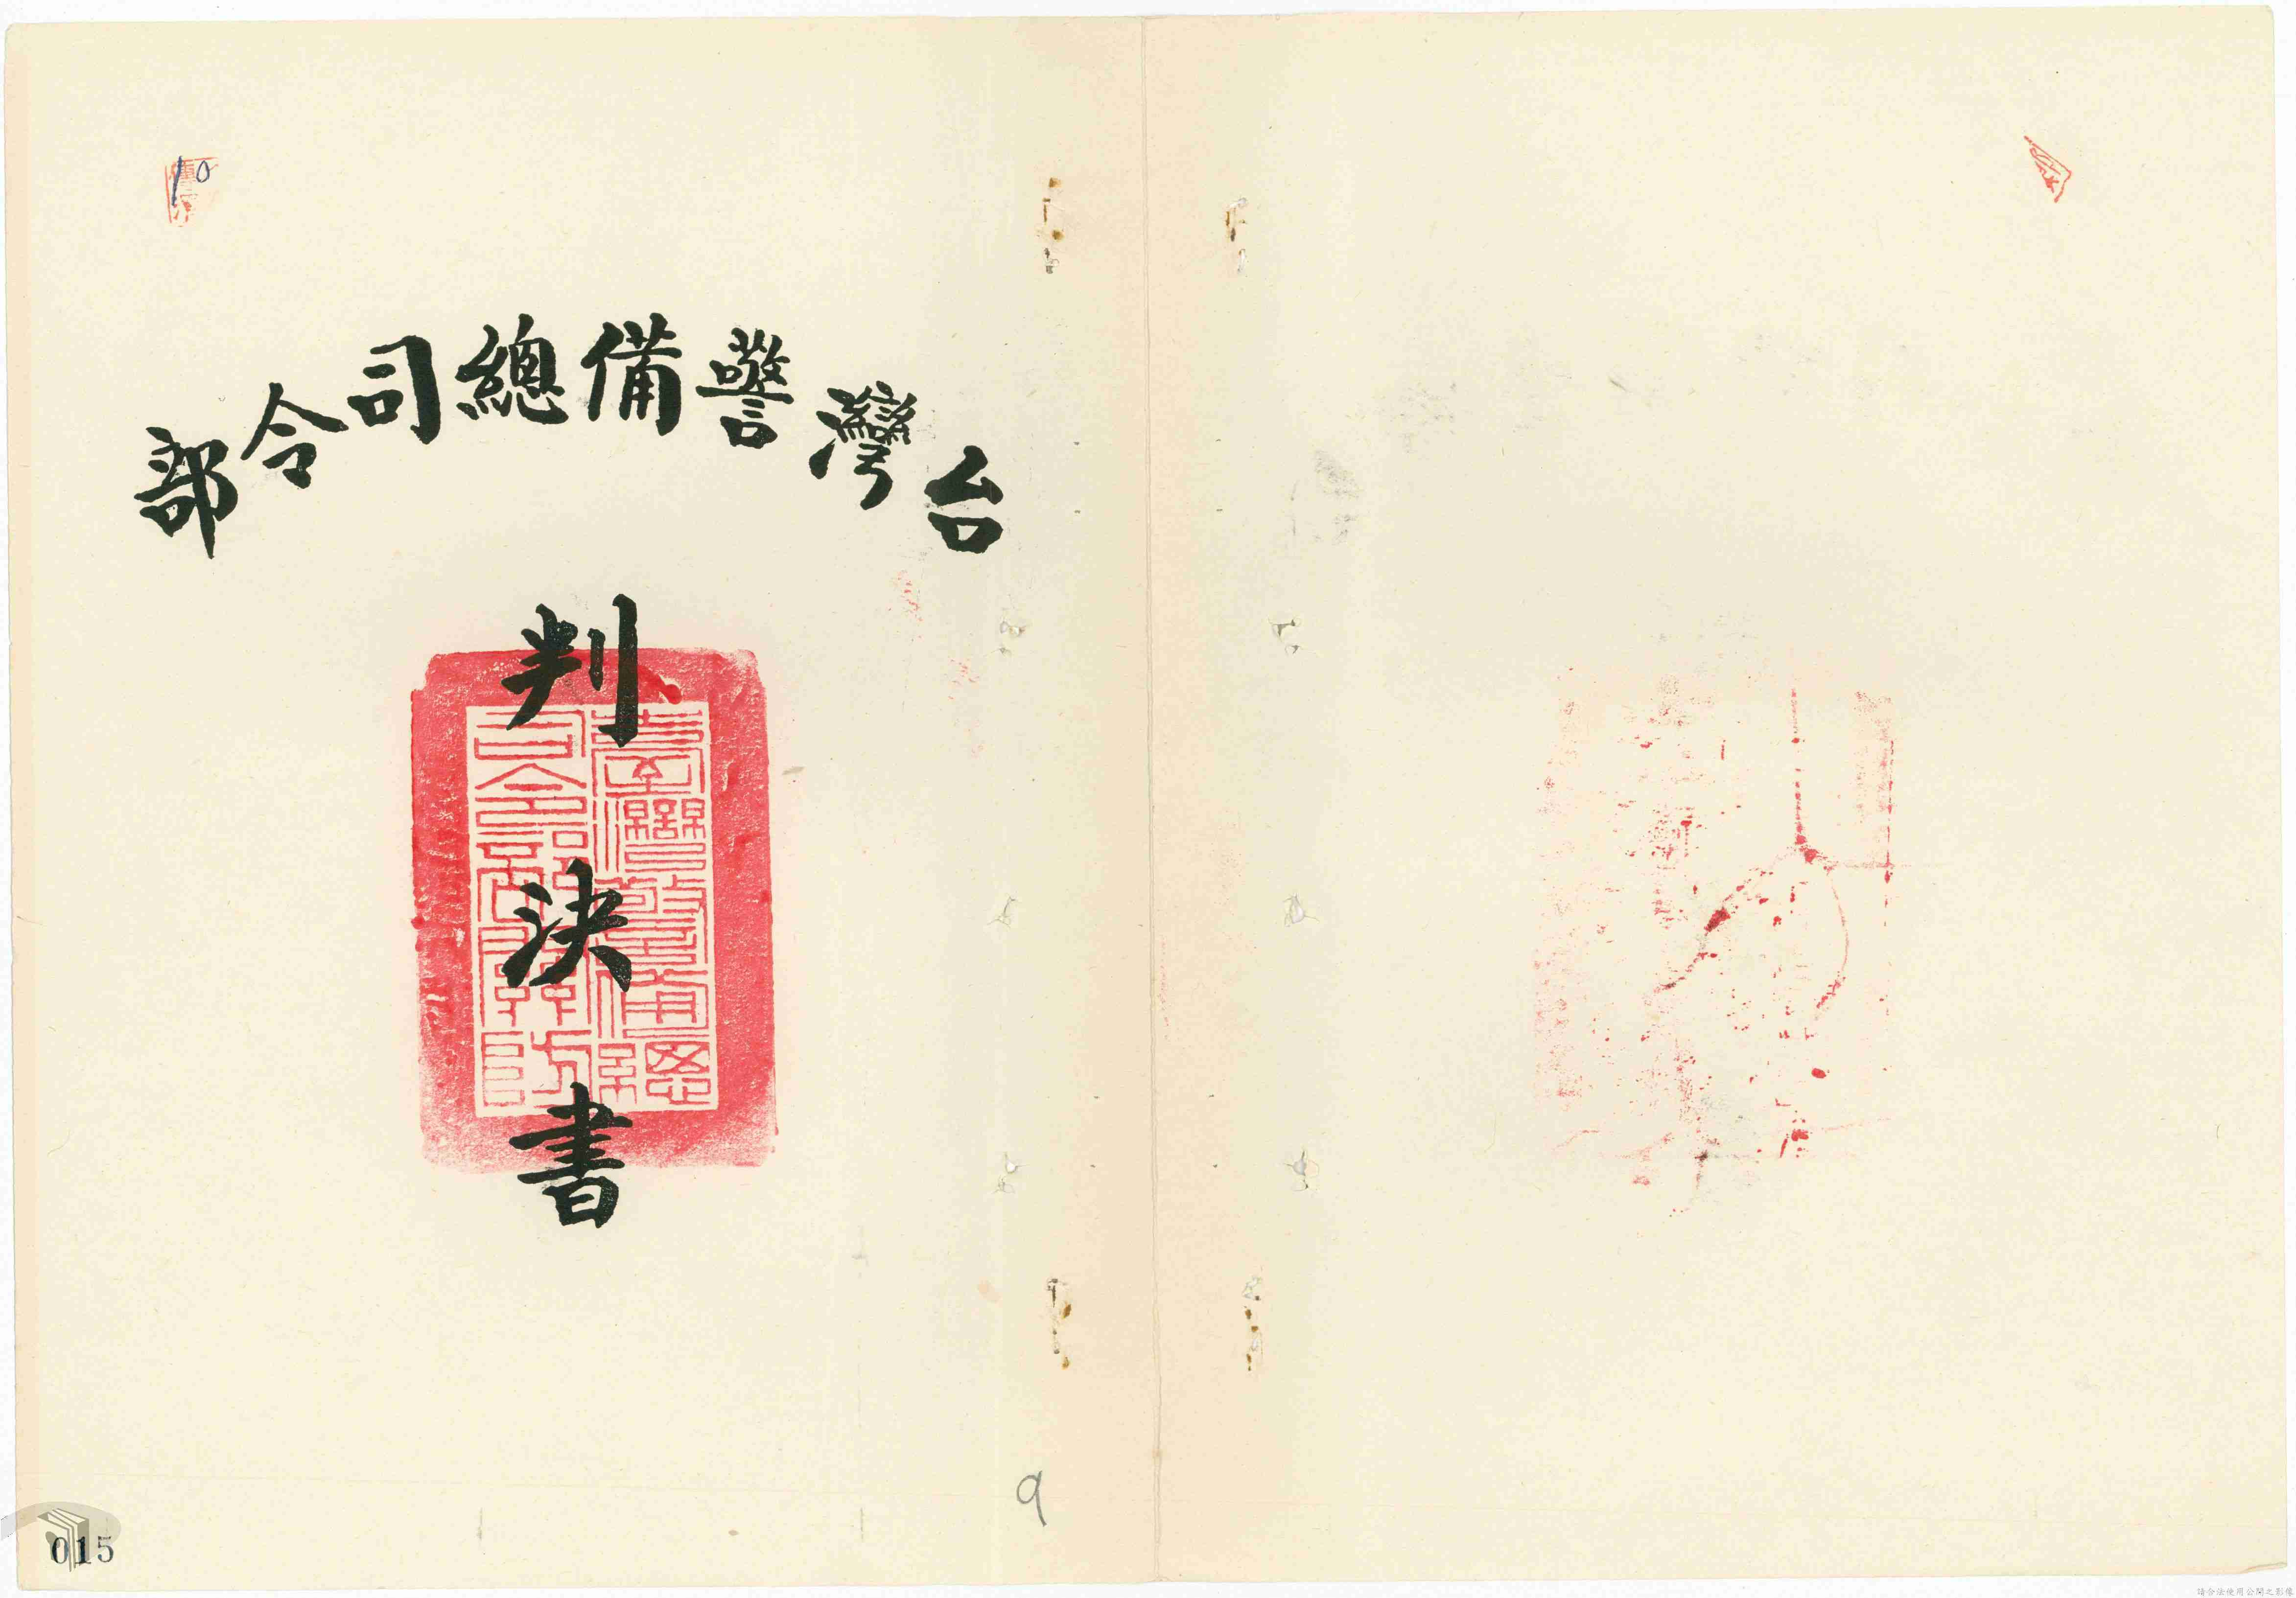 台灣警備總司令部
判決書
臺灣警備總
司令部關防
10
9
015
請合法使用公開之影像